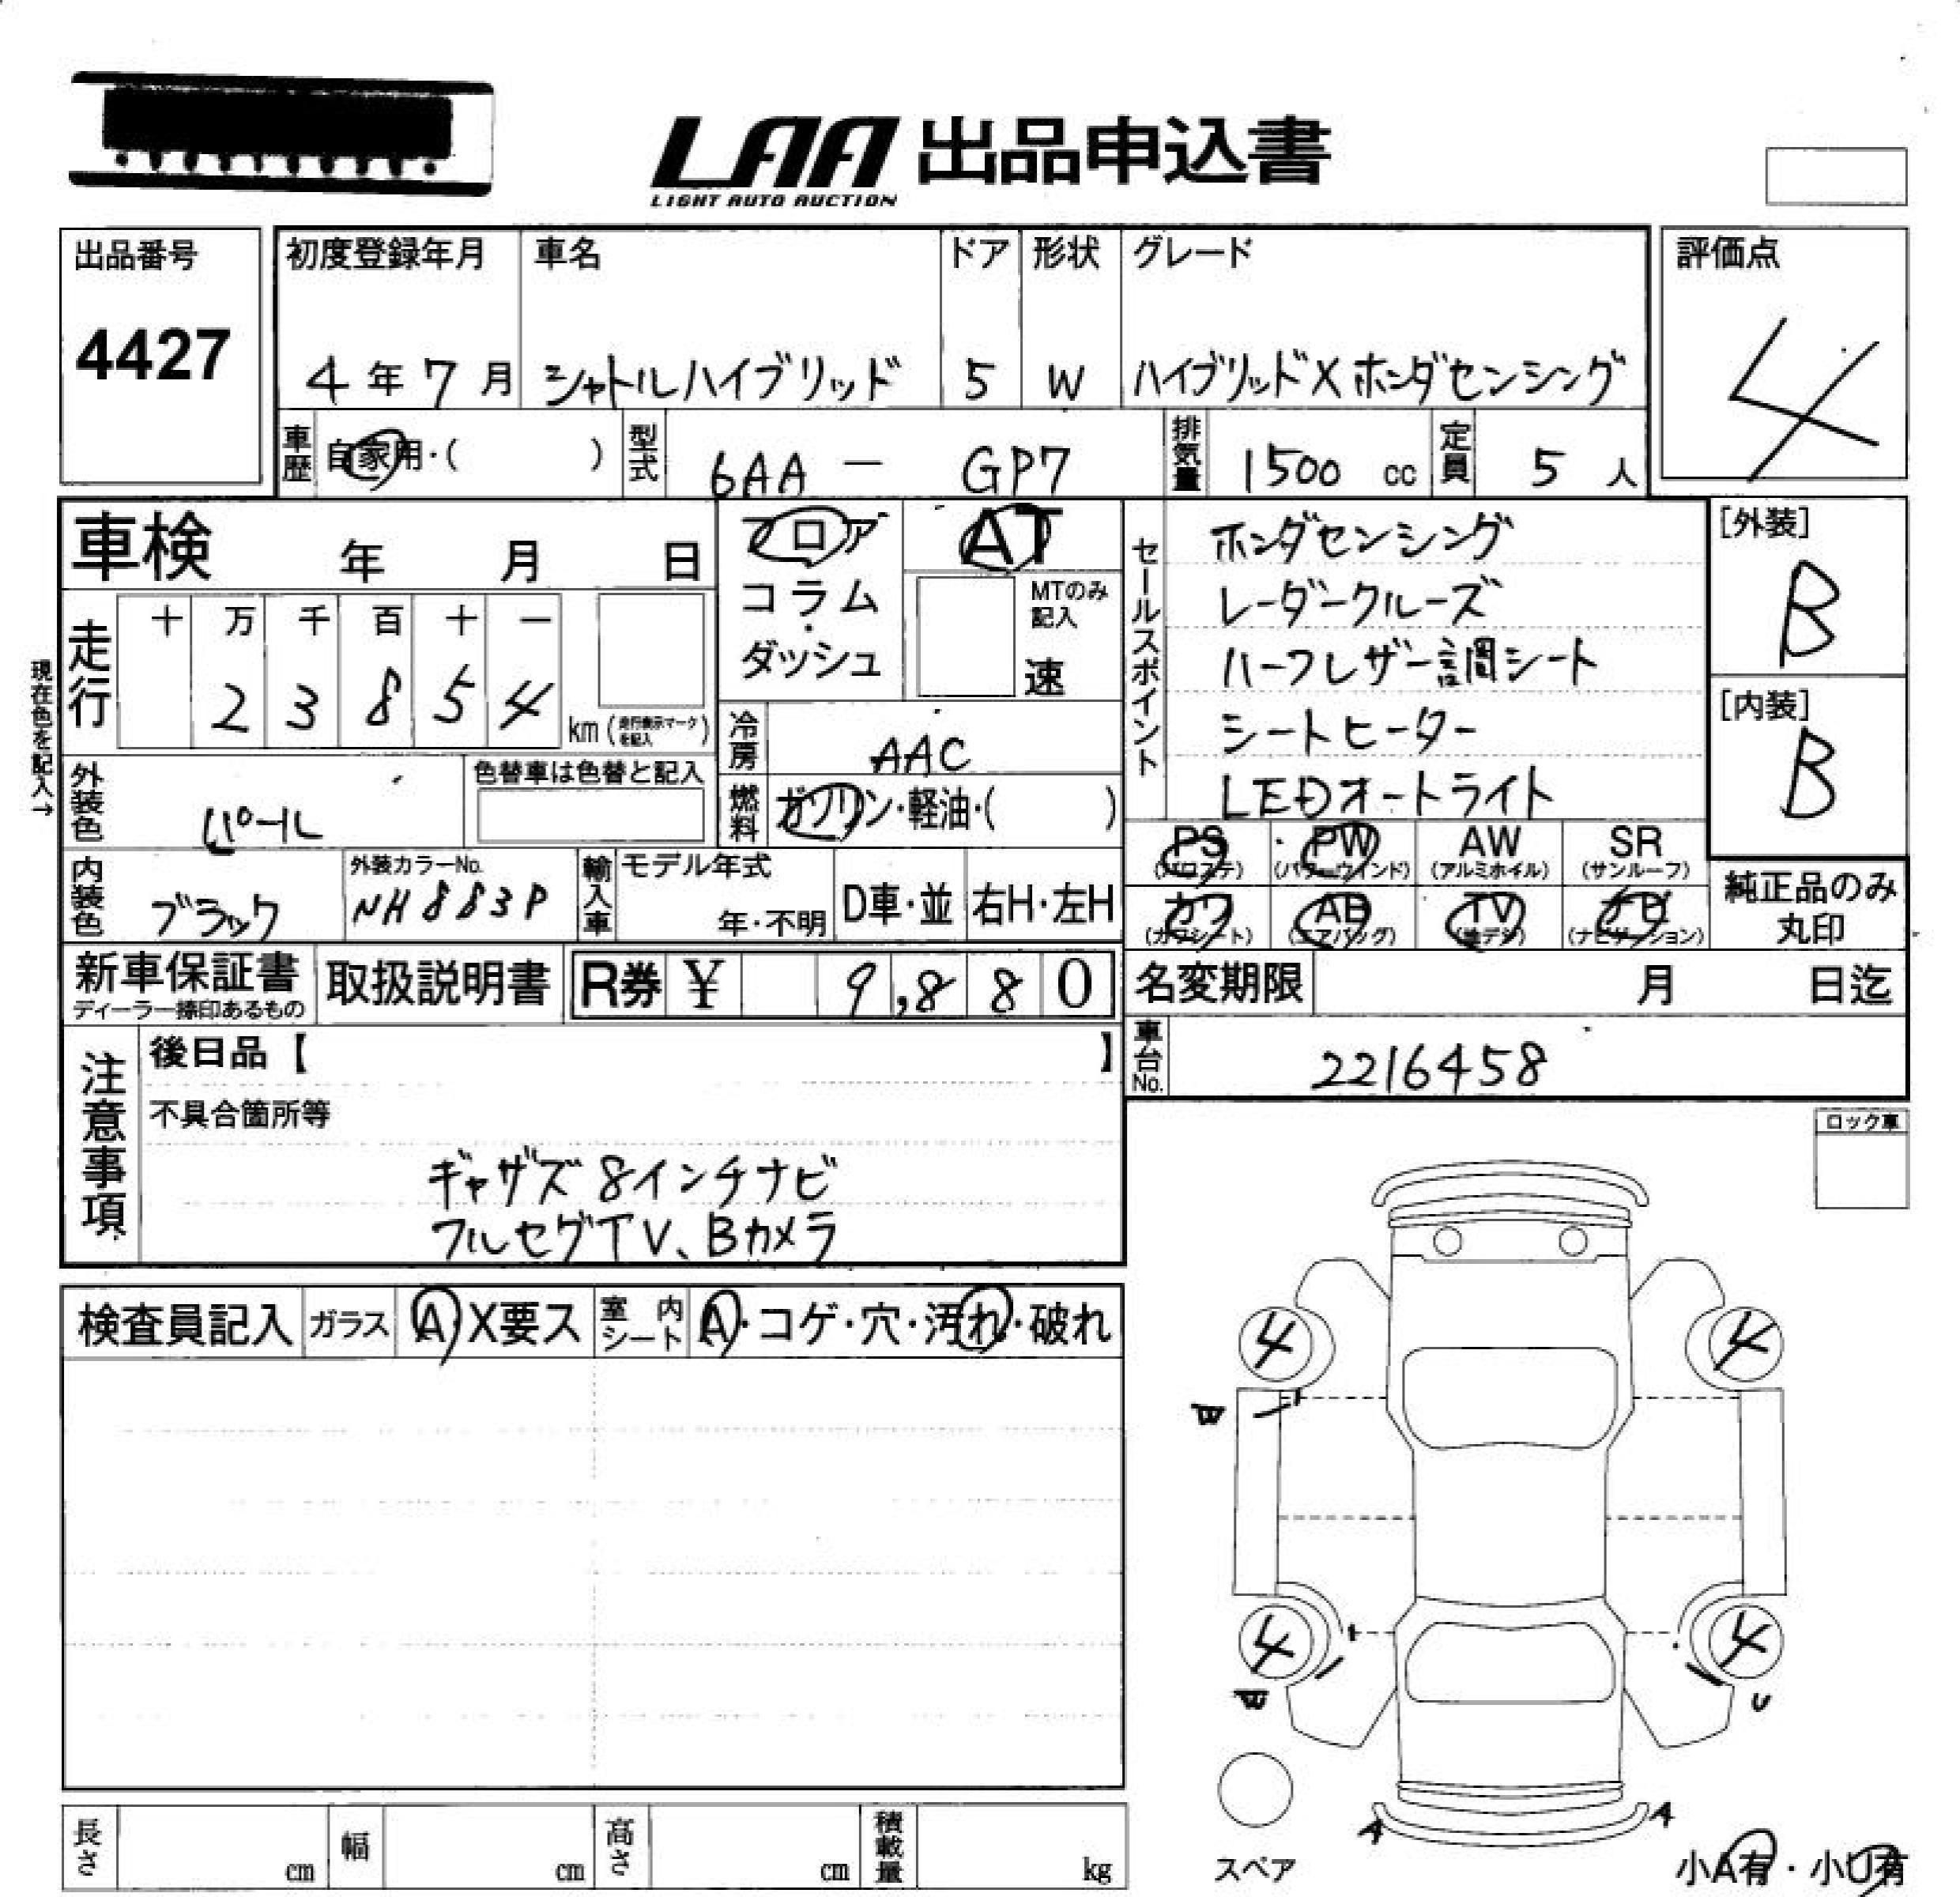 LAA 出品申込書
LIGHT AUTO AUCTION
出品番号
4427
初度登録年月 車名 ドア 形状 グレード
4年7月 シャトルハイブリッド 5 W ハイブリッドXホンダセンシング
評価点
4
車歴 自家用・( ) 型式 6AA - GP7 排気量 1500 cc 定員 5 人
車検 年 月 日
フロア
コラム
・
ダッシュ
AT
MTのみ
記入
速
現在色を記入→
走行
十 万 千 百 十 一
2 3 8 5 4
km (走行表示マークを記入)
冷房 AAC
燃料 ガソリン・軽油・( )
外装色 パール
色替車は色替と記入
内装色 ブラック
外装カラーNo.
NH883P
輸入車
モデル年式
年・不明
D車・並
右H・左H
セールスポイント
ホンダセンシング
レーダークルーズ
ハーフレザー調シート
シートヒーター
LEDオートライト
[外装]
B
[内装]
B
PS PW AW SR
(パワステ) (パワーウインド) (アルミホイル) (サンルーフ)
カワ AB TV ナビ
(カワシート) (エアバッグ) (地デジ) (ナビゲーション)
純正品のみ
丸印
新車保証書
ディーラー捺印あるもの
取扱説明書
R券 ¥ 9,880
名変期限 月 日迄
車台No. 2216458
注意事項
後日品【 】
不具合箇所等
ギャザズ8インチナビ
フルセグTV、Bカメラ
ロック車
検査員記入 ガラス A・X要ス 室内シート A・コゲ・穴・汚れ・破れ
4 4
W
4 4
W U
A A
スペア
小A有・小U有
長さ cm 幅 cm 高さ cm 積載量 kg